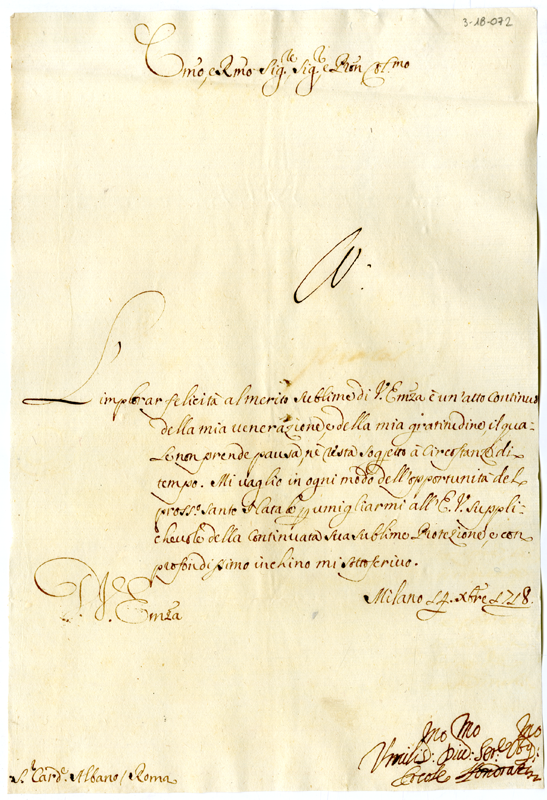 3-18-072
Emo, e Rmo Sig.re Sig.r e Pron Col.mo
L'implorar felicità al merito sublime di V.ra Emza è un'atto continuo
della mia venerazione, e della mia gratitudine, il qua-
le non prende pausa, nè resta sogetto à circostanze di
tempo. Mi vaglio in ogni modo dell'opportunità del
pross.o Santo Natale p umigliarmi all'E. V. suppli-
chevole della continuata sua sublime Protezione, e con
profondissimo inchino mi sottoscrivo.
Milano 14. Xbre 1718.
D. V.ra Emza
Umilis: Div: Ser.e Obg:
mo mo mo
Ercole
S.r Card.e Albano / Roma